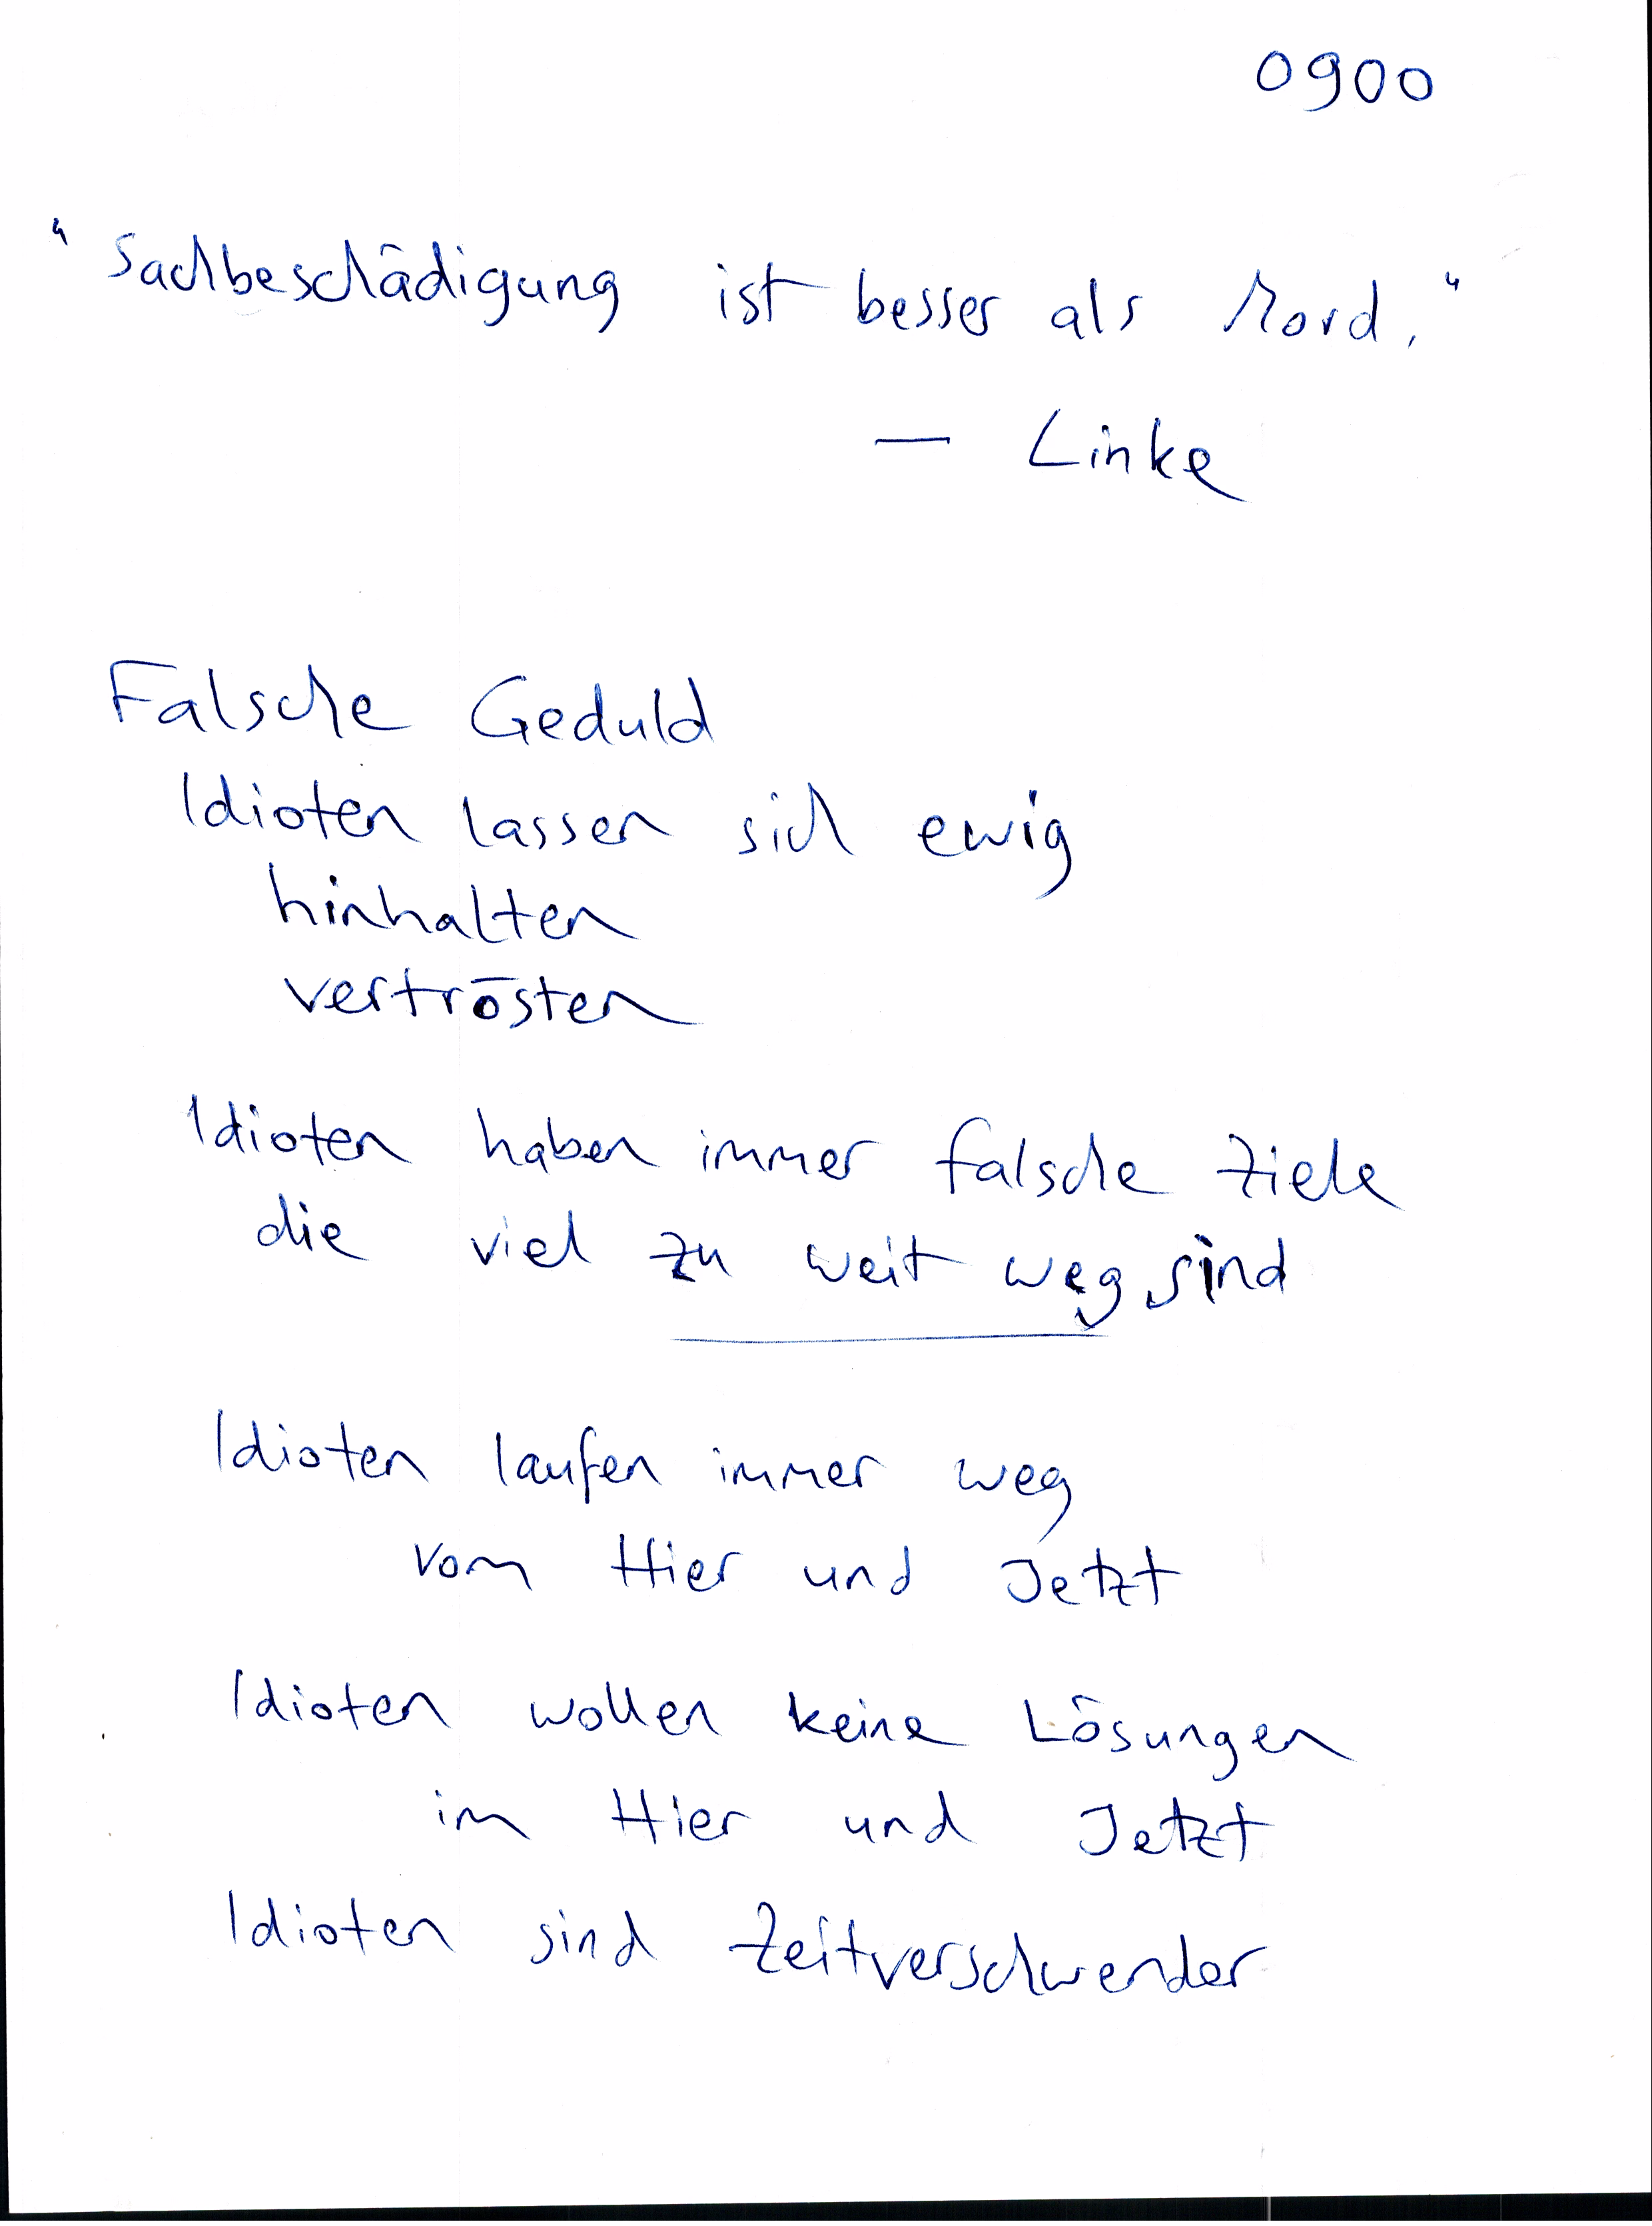 0900
"Sachbeschädigung ist besser als Mord."
— Linke
Falsche Geduld
Idioten lassen sich ewig
hinhalten
vertrösten
Idioten haben immer falsche Ziele
die viel zu weit weg sind
Idioten laufen immer weg
vom Hier und Jetzt
Idioten wollen keine Lösungen
im Hier und Jetzt
Idioten sind Zeitverschwender